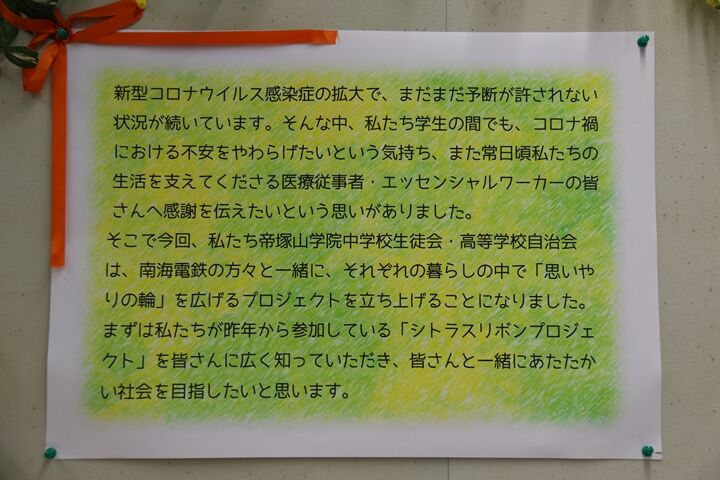 新型コロナウイルス感染症の拡大で、まだまだ予断が許されない
状況が続いています。そんな中、私たち学生の間でも、コロナ禍
における不安をやわらげたいという気持ち、また常日頃私たちの
生活を支えてくださる医療従事者・エッセンシャルワーカーの皆
さんへ感謝を伝えたいという思いがありました。
そこで今回、私たち帝塚山学院中学校生徒会・高等学校自治会
は、南海電鉄の方々と一緒に、それぞれの暮らしの中で「思いや
りの輪」を広げるプロジェクトを立ち上げることになりました。
まずは私たちが昨年から参加している「シトラスリボンプロジェ
クト」を皆さんに広く知っていただき、皆さんと一緒にあたたか
い社会を目指したいと思います。